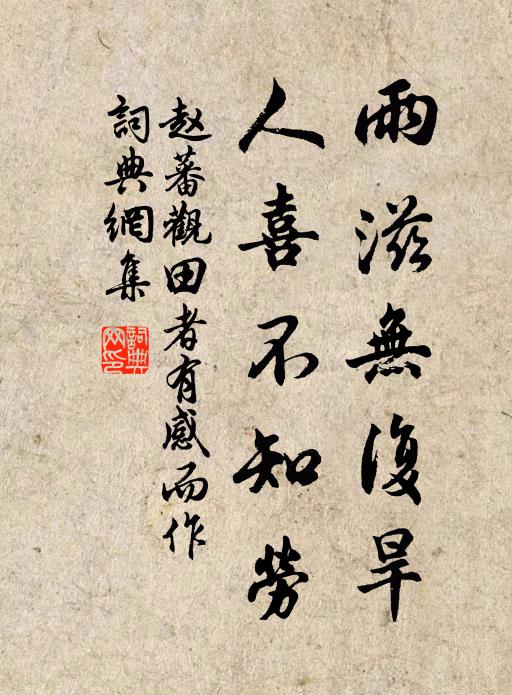 雨滋無復旱
人喜不知勞
赵蕃觀田者有感而作
詞典網集
詞典网印